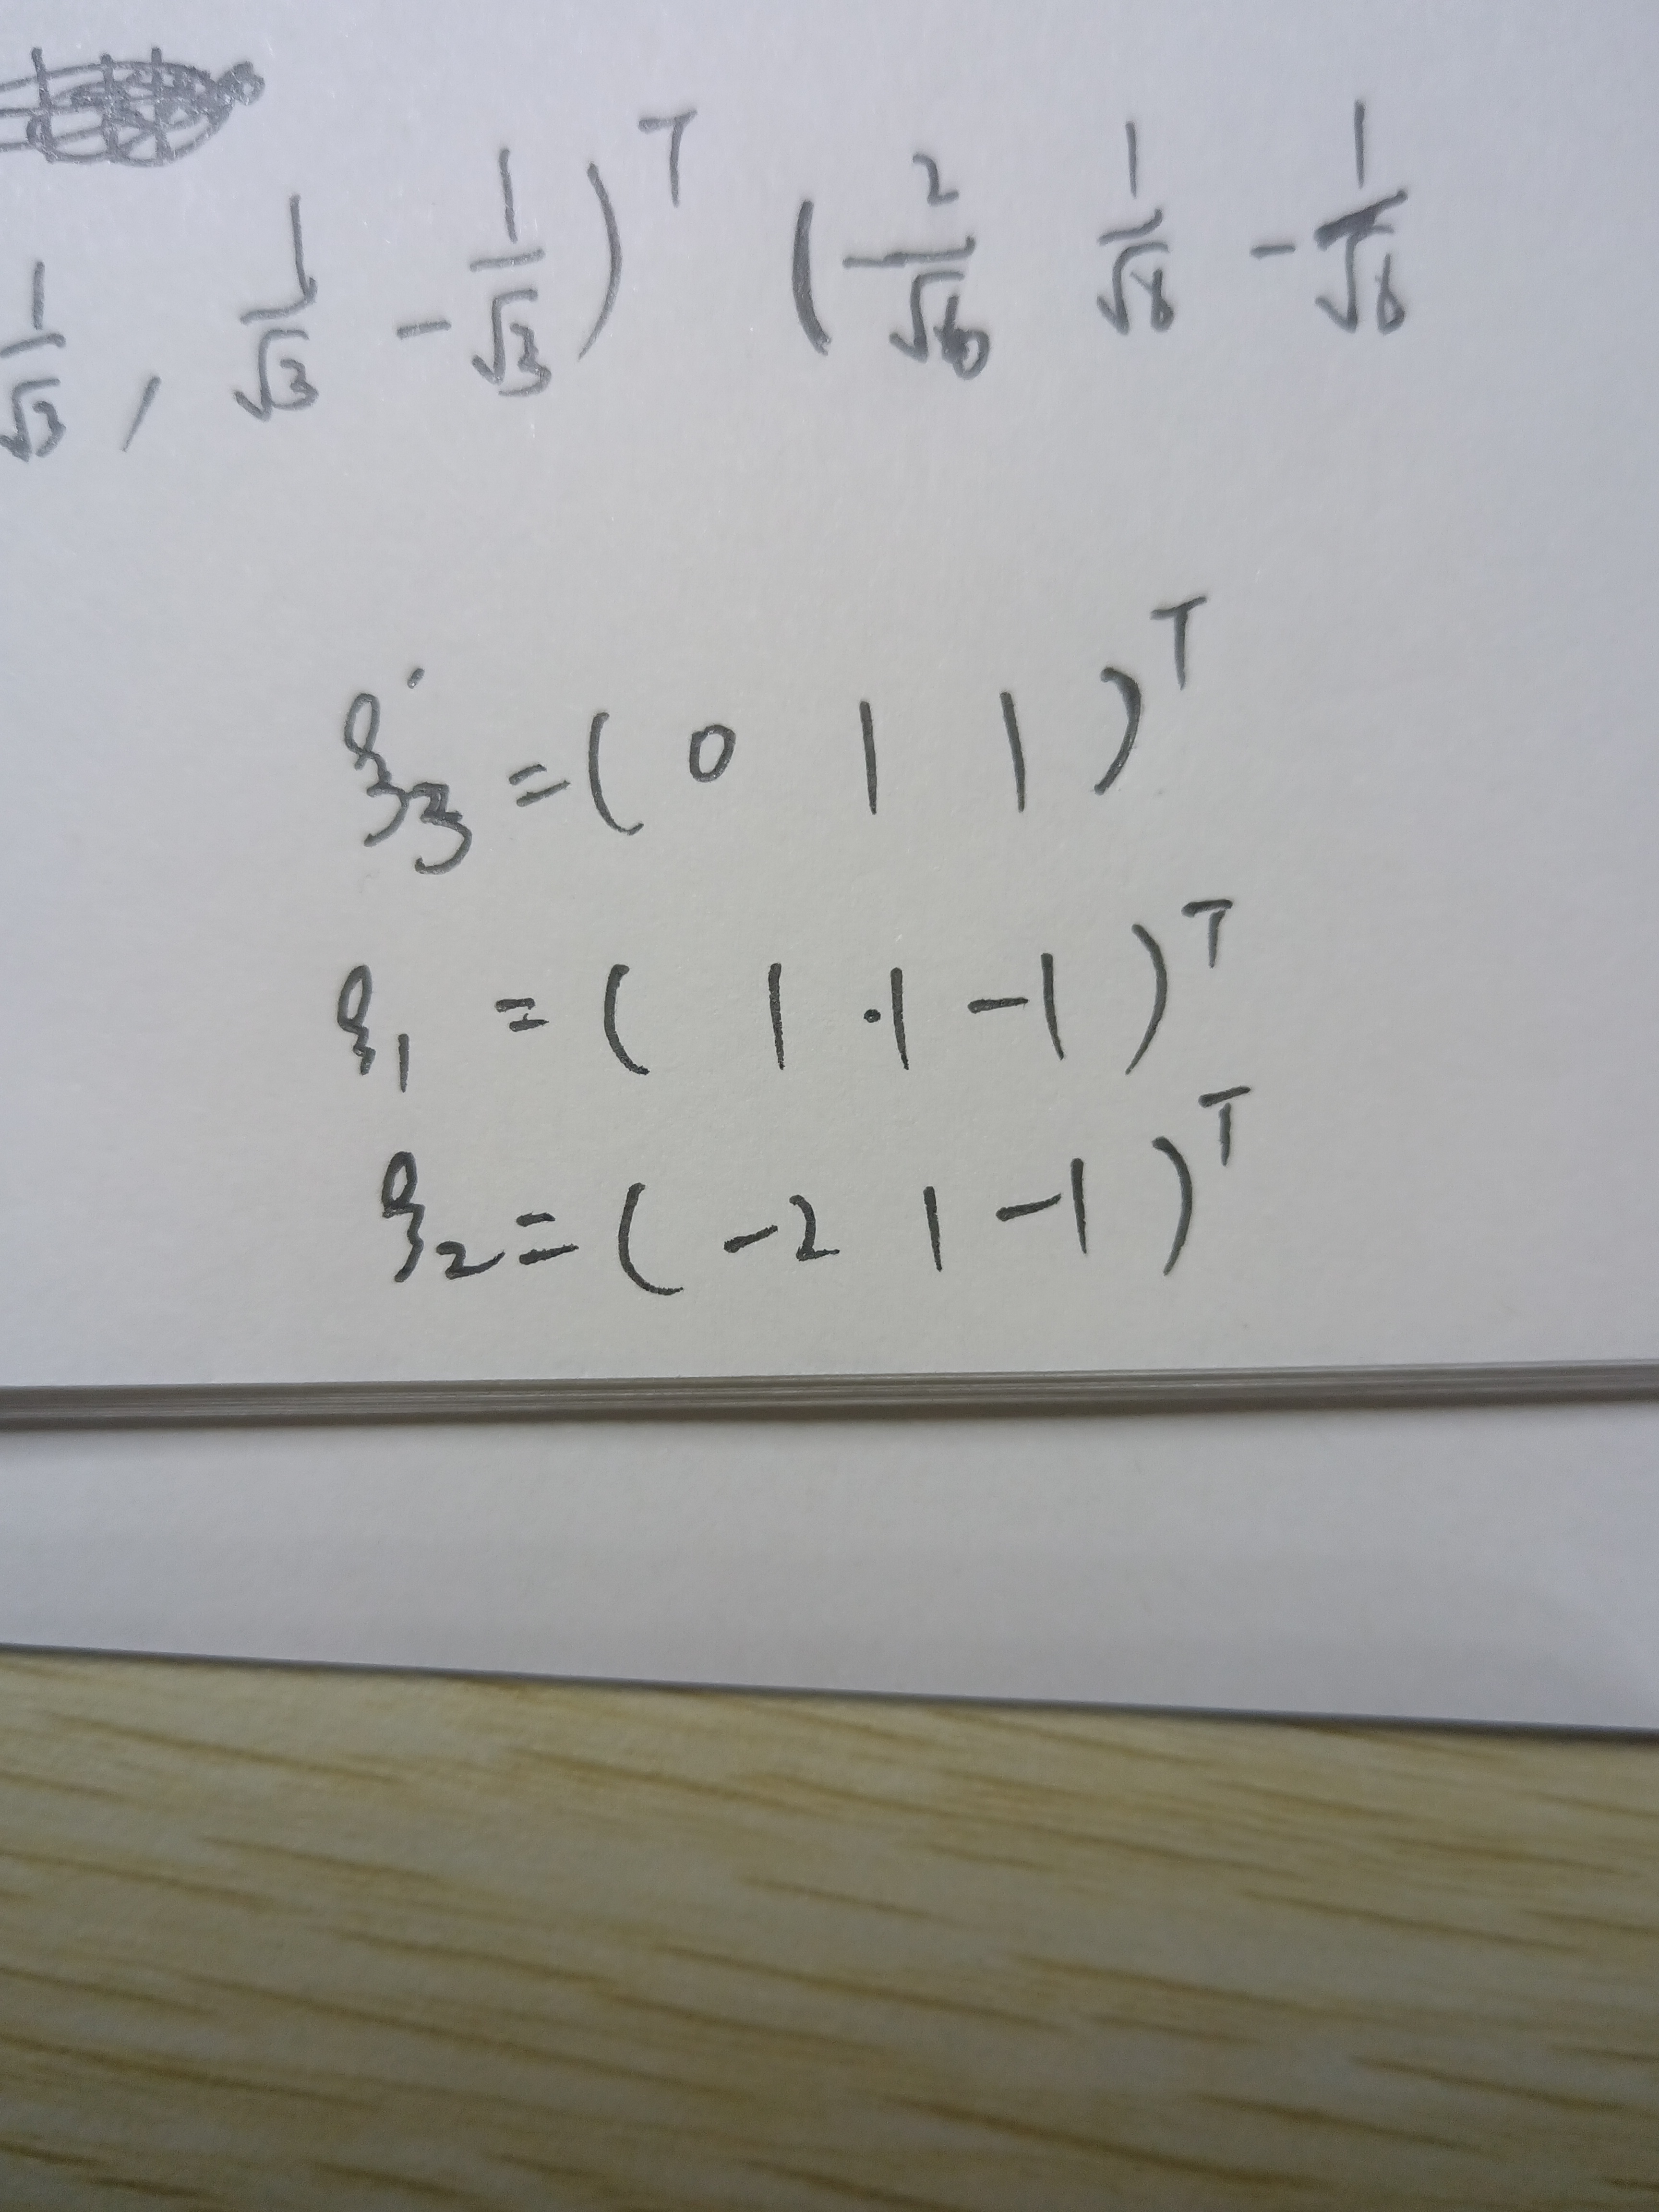 1/√3 , 1/√3 - 1/√3 )ᵀ ( -2/√6 1/√6 - 1/√6
ξ₃ = ( 0 1 1 )ᵀ
ξ₁ = ( 1 1 -1 )ᵀ
ξ₂ = ( -2 1 -1 )ᵀ